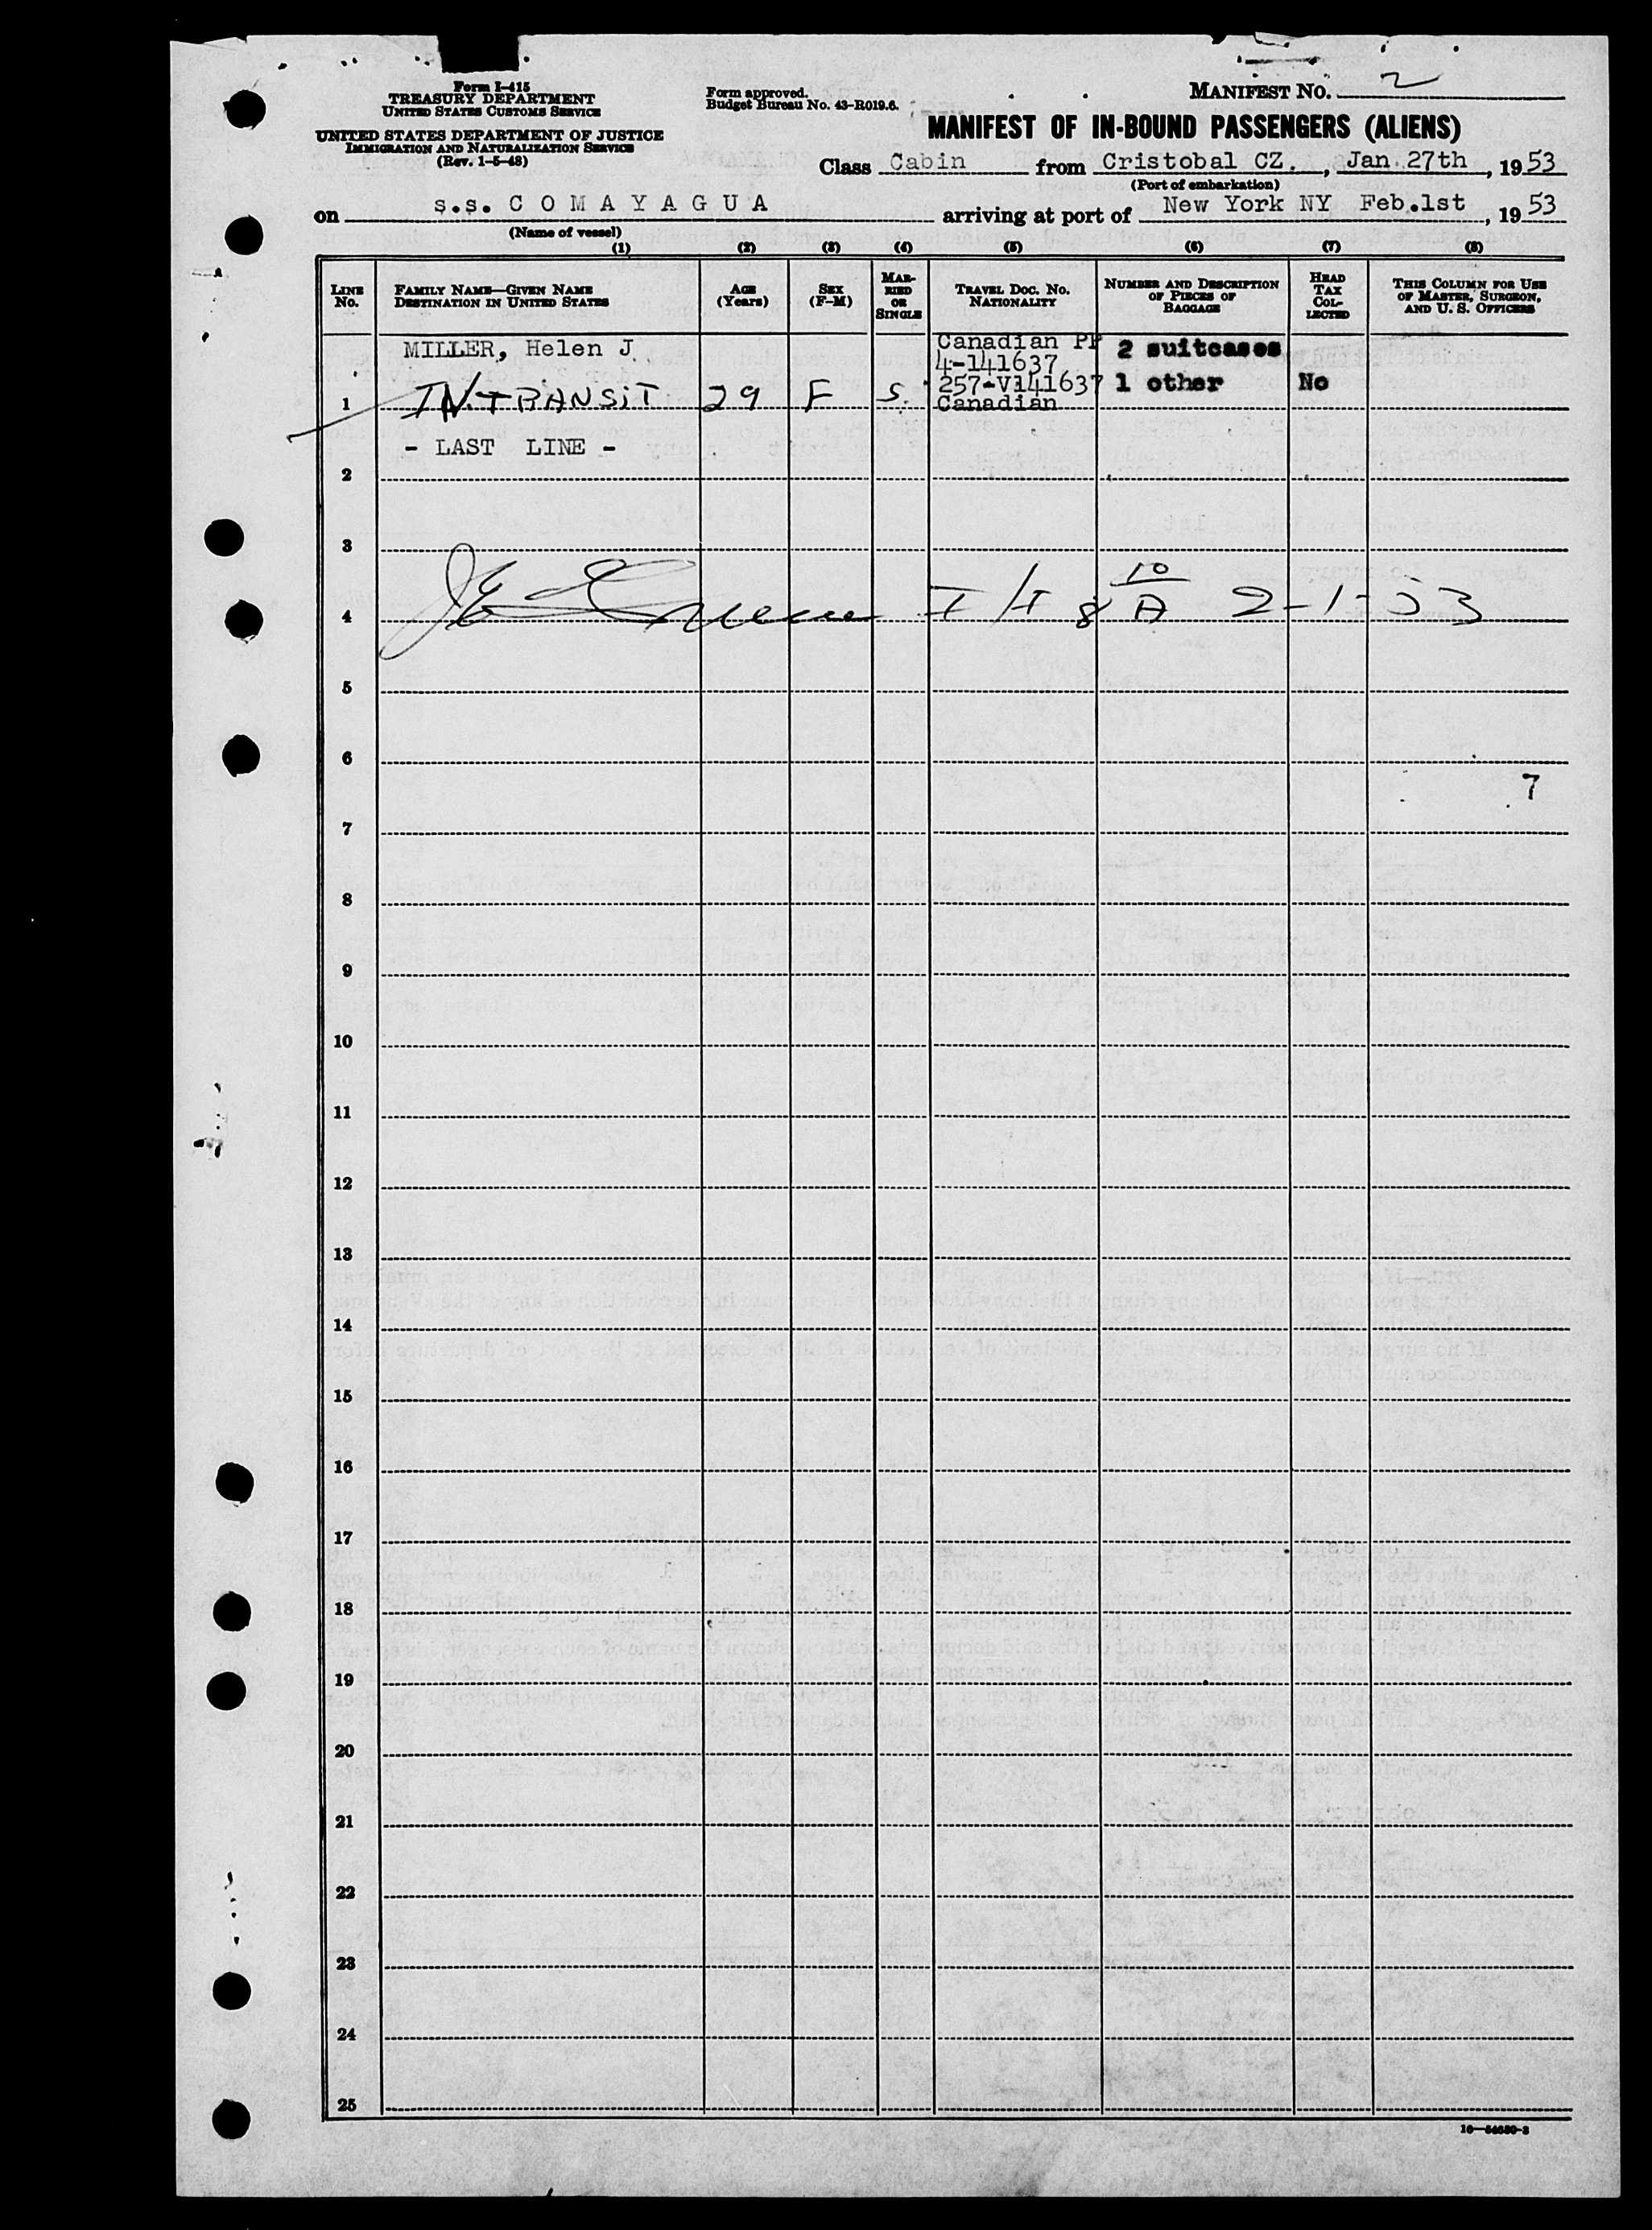 Form I-415
TREASURY DEPARTMENT
UNITED STATES CUSTOMS SERVICE
UNITED STATES DEPARTMENT OF JUSTICE
IMMIGRATION AND NATURALIZATION SERVICE
(Rev. 1-5-48)
Form approved.
Budget Bureau No. 43-R019.6.
MANIFEST NO. 2
MANIFEST OF IN-BOUND PASSENGERS (ALIENS)
Class Cabin from Cristobal CZ., Jan.27th, 1953
(Port of embarkation)
on s.s. C O M A Y A G U A arriving at port of New York NY Feb.1st, 1953
(Name of vessel)
(1) (2) (3) (4) (5) (6) (7) (8)
LINE No.
FAMILY NAME—GIVEN NAME
DESTINATION IN UNITED STATES
AGE (Years)
SEX (F-M)
MARRIED OR SINGLE
TRAVEL DOC. NO.
NATIONALITY
NUMBER AND DESCRIPTION OF PIECES OF BAGGAGE
HEAD TAX COLLECTED
THIS COLUMN FOR USE OF MASTER, SURGEON, AND U. S. OFFICERS
MILLER, Helen J Canadian PP 2 suitcases
4-141637
1 IN TRANSIT 29 F S. 257-V141637 1 other No
Canadian
- LAST LINE -
2
3
4 I/I 8 10/A 2-1-53
5
6
7
7
8
9
10
11
12
13
14
15
16
17
18
19
20
21
22
23
24
25